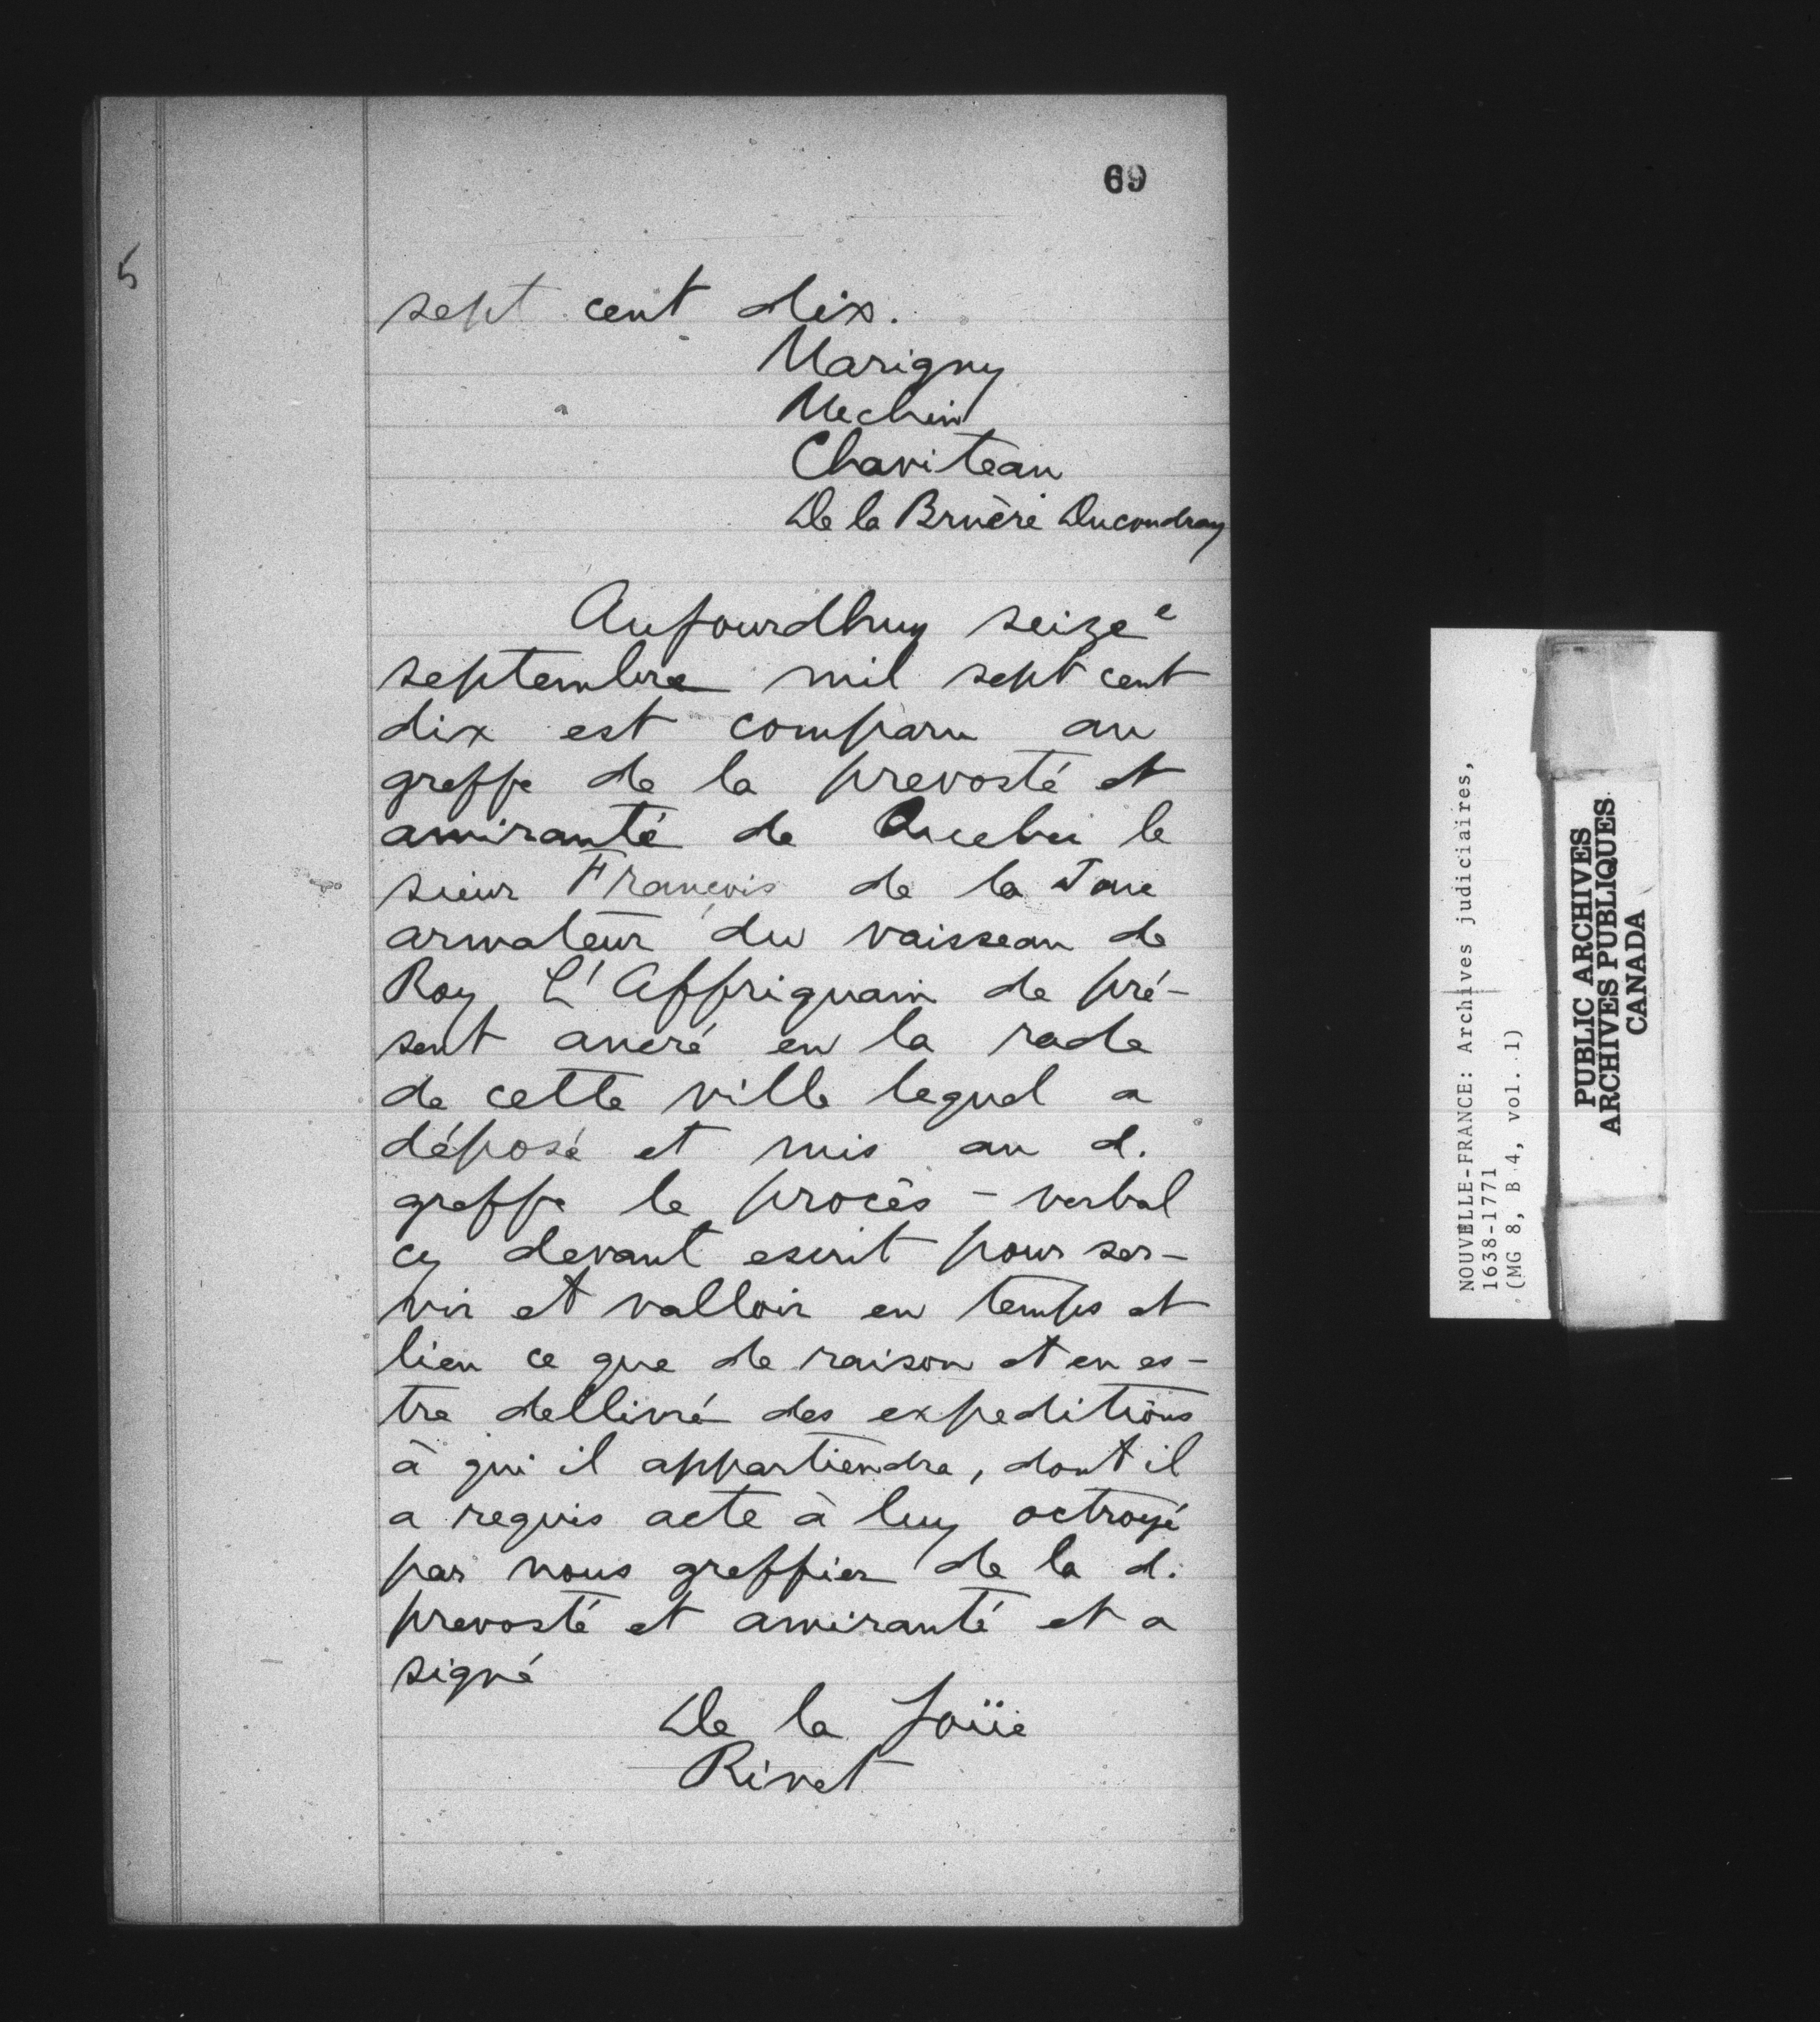 69
5
sept cent dix.
Marigny
Mechin
Chaviteau
De la Bruère Ducoudray
Aujourdhuy seize e
septembre mil sept cent
dix est comparu au
greffe de la prevosté et
amirauté de Quebec le
sieur François de la Joue
armateur du vaisseau de
Roy, L'Affriquain de pré-
sent ancré en la rade
de cette ville lequel a
déposé et mis au d.
greffe le procès-verbal
cy devant escrit pour ser-
vir et valloir en temps et
lieu ce que de raison et en es-
tre dellivré des expeditions
à qui il appartiendra, dont il
a requis acte à luy octroyé
par nous greffier de la d.
prevosté et amirauté et a
signé
De la Joüe
Rivet
NOUVELLE-FRANCE: Archives judiciaires,
1638-1771
(MG 8, B 4, vol. 1)
PUBLIC ARCHIVES
ARCHIVES PUBLIQUES
CANADA